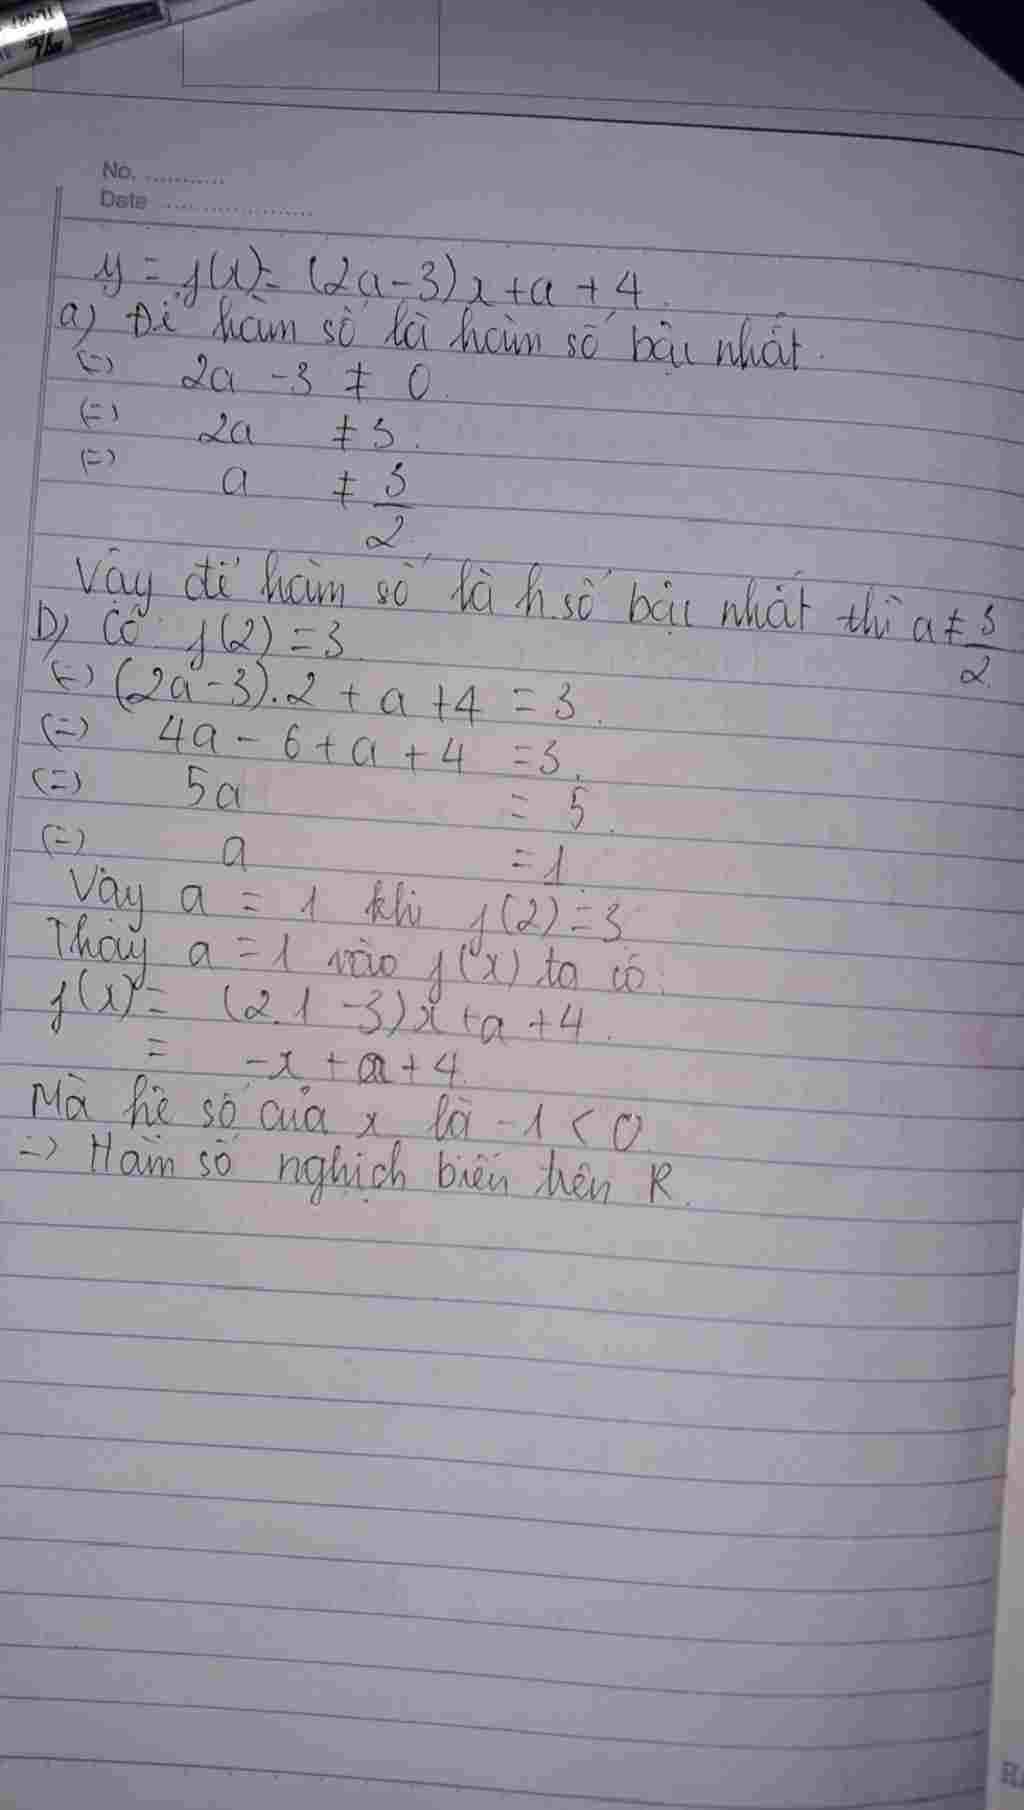 No. ...........
Date .....................
y = f(x) = (2a-3)x+a+4.
a) Để hàm số là hàm số bậc nhất.
(=) 2a - 3 ≠ 0
(=) 2a ≠ 3.
(=) a ≠ 3/2
Vậy để hàm số là h.số bậc nhất thì a ≠ 3/2.
b) Có f(2) = 3
(=) (2a-3).2 + a + 4 = 3.
(=) 4a - 6 + a + 4 = 3.
(=) 5a = 5.
(=) a = 1
Vậy a = 1 khi f(2) = 3
Thay a = 1 vào f(x) ta có:
f(x) = (2.1 - 3)x + a + 4.
= -x + a + 4.
Mà hệ số của x là -1 < 0
=> Hàm số nghịch biến trên R.